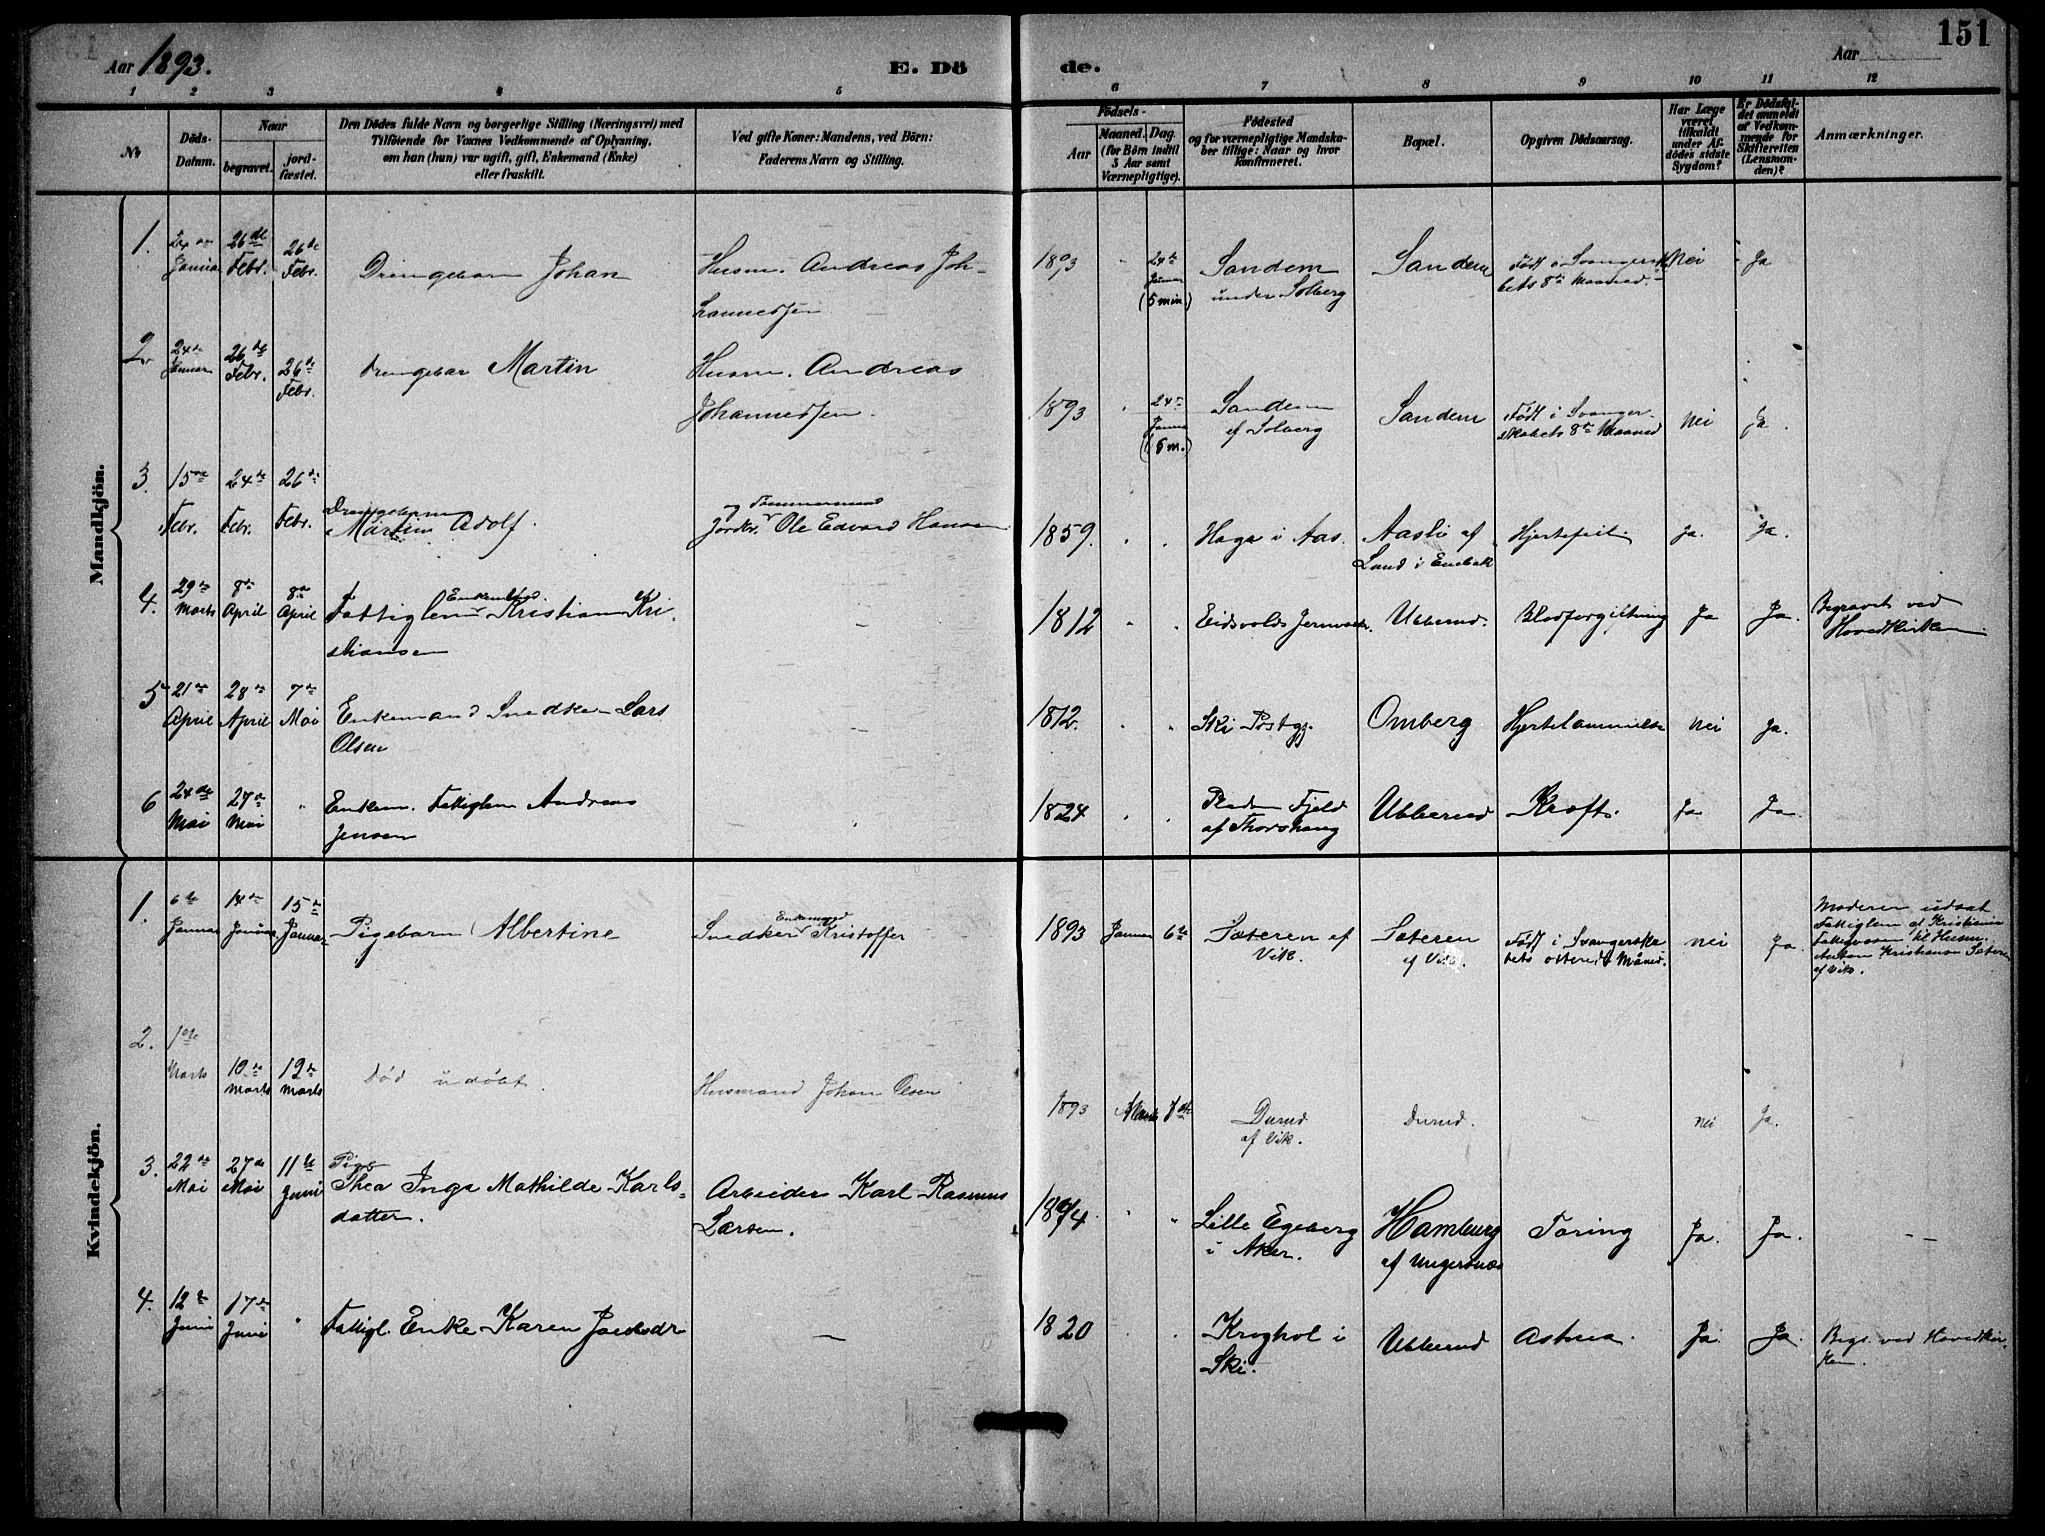 151
Aar 1893.
E. Döde.
Aar
1 2 3 4 5 6 7 8 9 10 11 12
№
Döds-Datum.
Naar
begravet.
jordfæstet.
Den Dödes fulde Navn og borgerlige Stilling (Næringsvei) med
Tilföiende for Voxnes Vedkommende af Oplysning,
om han (hun) var ugift, gift, Enkemand (Enke)
eller fraskilt.
Ved gifte Koner: Mandens, ved Börn:
Faderens Navn og Stilling.
Födsels-
Aar
Maaned. Dag.
(for Börn indtil
5 Aar samt
Værnepligtige).
Födested
og for værnepligtige Mandskaber tillige: Naar og hvor
konfirmeret.
Bopæl.
Opgiven Dödsaarsag.
Har Læge
været
tilkaldt
under Afdödes sidste
Sygdom?
Er Dödsfaldet anmeldt
af Vedkommende for
Skifteretten
(Lensmanden)?
Anmærkninger.
Mandkjön.
1. 24de Januar 26de Febr. 26de Febr. Drengebarn Johan Husm. Andreas Johannessen 1893 " 24de Januar (5 min.) Sandem under Solberg Sandem Født i Svangerskabets 8de Maaned. Nei Ja
2. 24de Januar 26de Febr. 26de Febr. Drengebar Martin Husm. Andreas Johannessen. 1893 " 24de Januar (5 m.) Sandem af Solberg Sandem Født i Svangerskabets 8de Maaned Nei Ja.
3. 15de Febr. 24de Febr. 26de Febr. Drengebarn Martin Adolf. Jordbr. og Tømmermand Ole Edvard Hansen 1859. " " Haga i Aas. Aasli af Sand i Enebak Hjertefeil. Ja. Ja.
4. 29de Marts 8de April 8de April Fattiglem Enkemand Kristian Kristiansen - 1812 " " Eidsvolds Jernværk. Ubberud. Blodforgiftning Ja Ja. Begravet ved Hovedkirken
5 21de April 28de April 7de Mai Enkemand Snedker Lars Olsen - 1812. " " Ski Præstgj. Omberg Hjertelammelse Nei Ja.
6 24de Mai 27de Mai " Enkem. Fattiglem Andreas Jensen 1824 " " Fjeld af Thorshaug Ubberud Kræft. Ja Ja.
Kvindekjön.
1. 6te Januar 14de Januar 15de Januar Pigebarn Albertine Snedker Enkemand Kristoffer 1893 Januar 6te Sæteren af Vik. Sæteren af Vik. Født i Svangerskabets ottende Måned. Nei Ja. Moderen udsat Fattiglem af Kristiania Fattigvæsen til Husm. Anton Kristiansen Sæteren af Vik.
2. 1ste Marts 10de Marts 12te Marts Død udøbt. Husmand Johan Olsen 1893 Marts 1ste Durud af Vik. Durud. - Nei Ja.
3. 22de Mai 27de Mai 11te Juni Pige Thea Inga Mathilde Karlsdatter. Arbeider Karl Rasmus Larsen. 1874 " " Lille Egeberg i Aker. Hamburg af Ungersnæs Tæring Ja. Ja. - -
4. 12te Juni 17de Juni " Fattigl. Enke Karen Jacobsdr - 1820 " " Kroghol i Ski. Ubberud Astma. Ja. Ja. Begr. ved Hovedkirken.